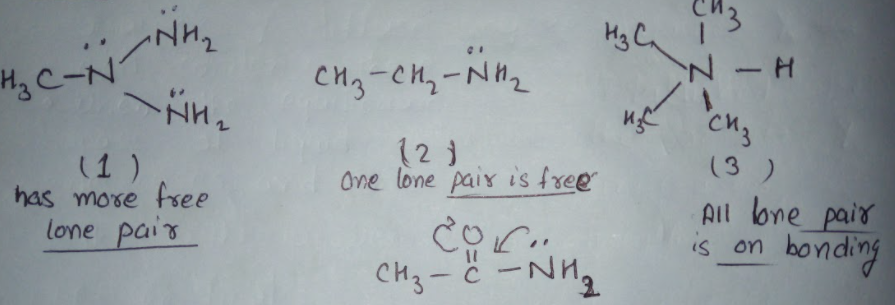 H₃C-N̈-N̈H₂
N̈H₂
(1)
has more free
lone pair
CH₃-CH₂-N̈H₂
(2)
One lone pair is free
O
CH₃-C-N̈H₂
CH₃
H₃C
N-H
H₃C
CH₃
(3)
All lone pair
is on bonding